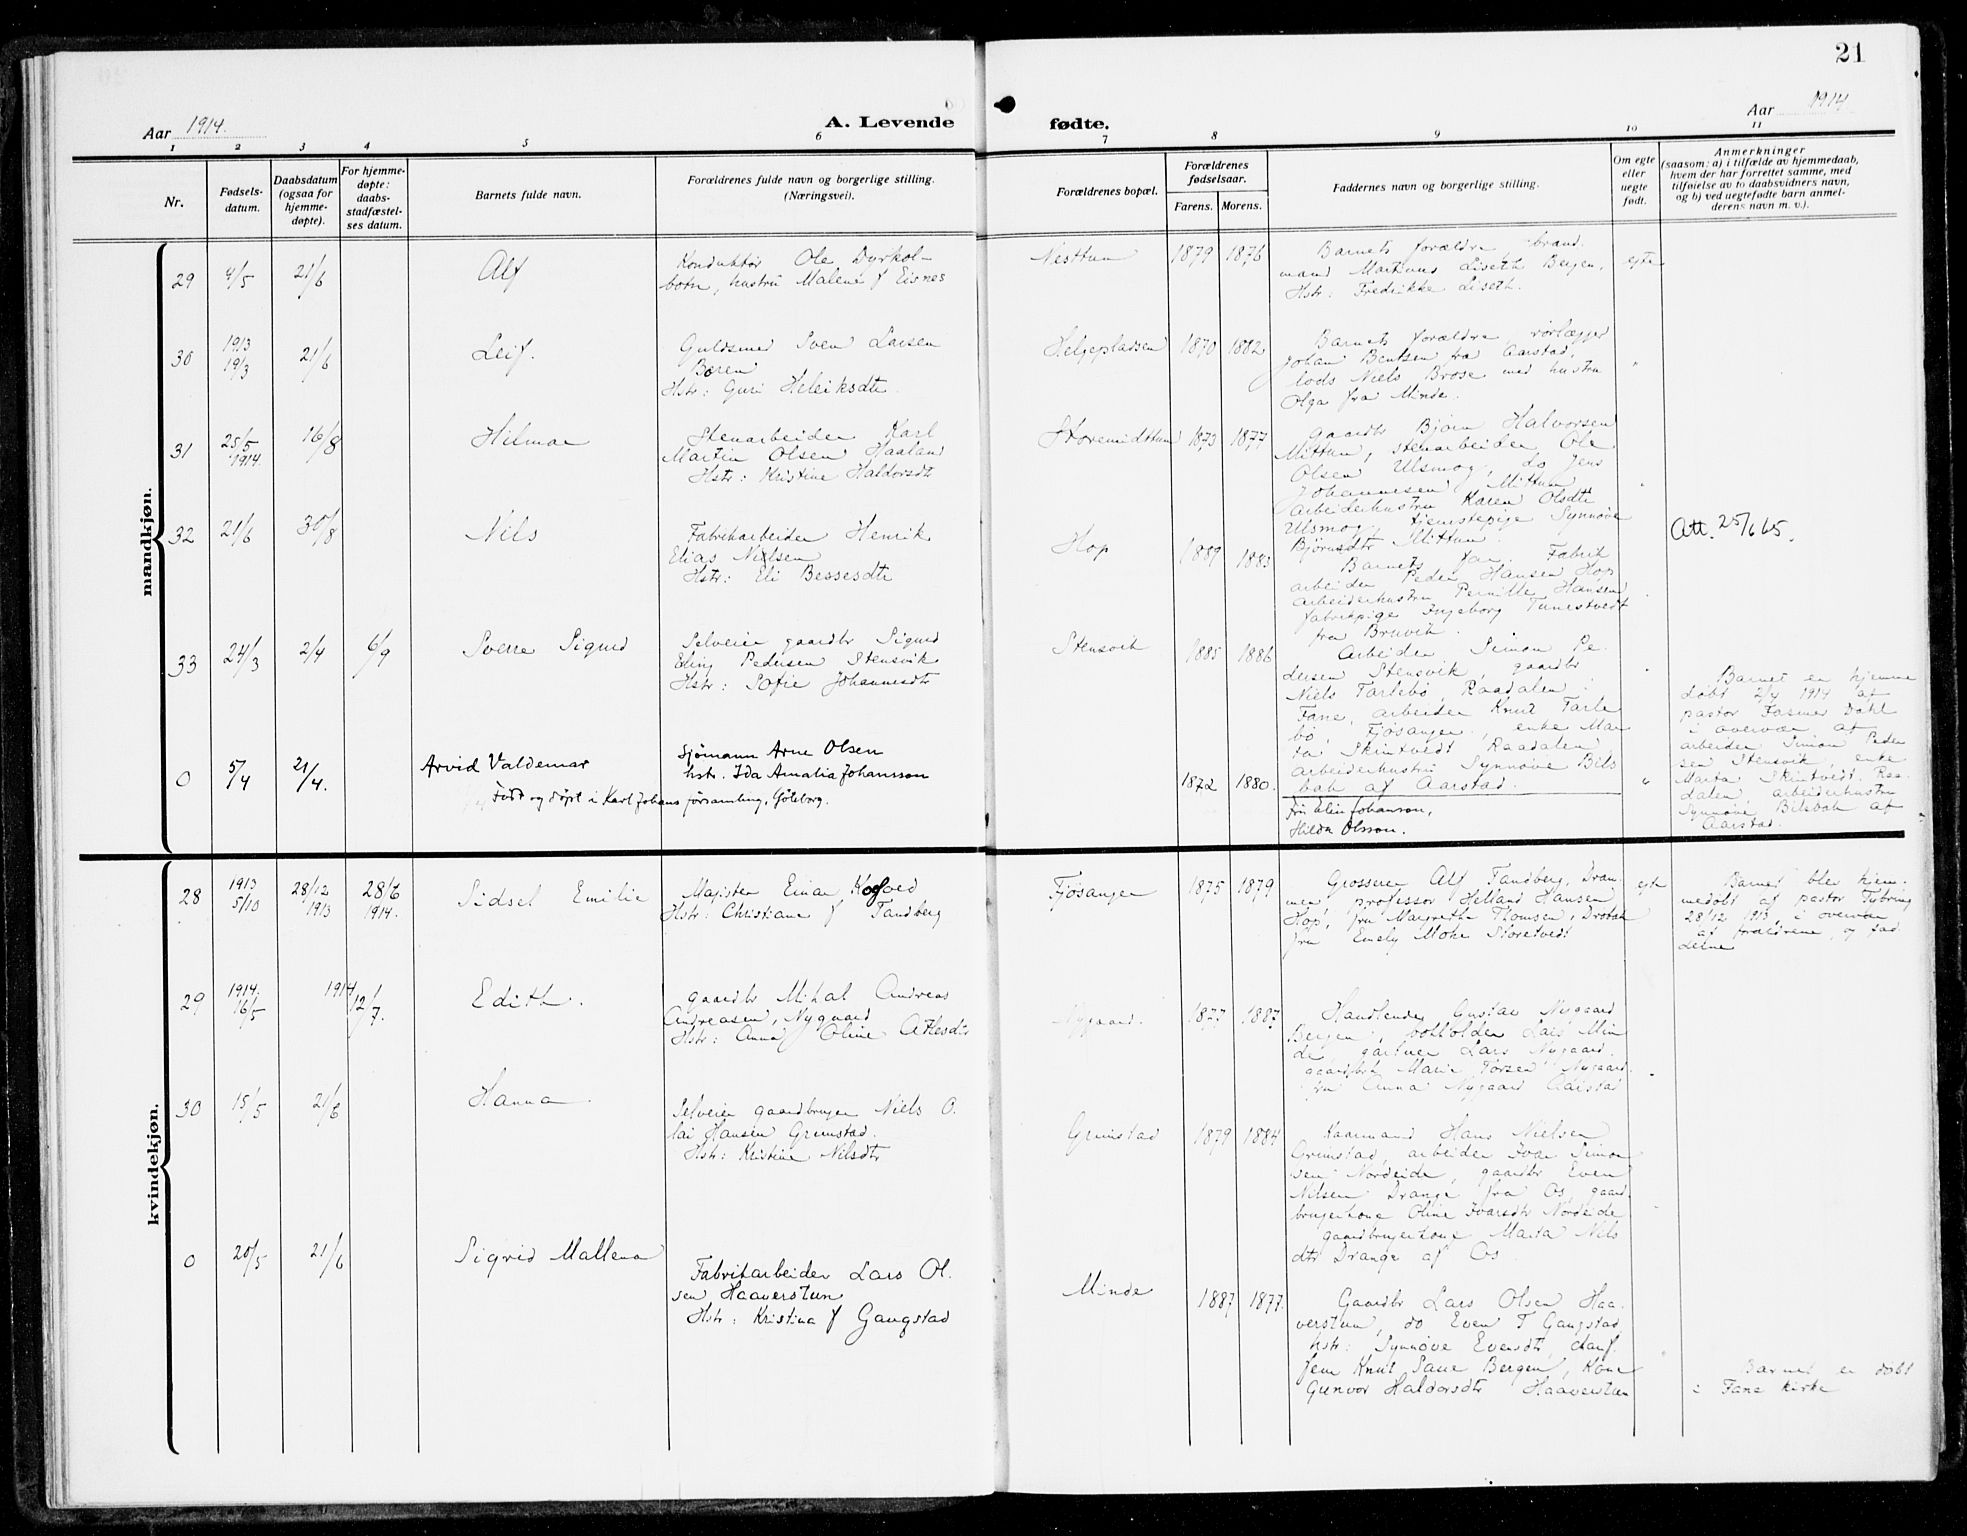 21
Aar 1914.
A. Levende
fødte.
Aar 1914
1 2 3 4 5 6 7 8 9 10 11
Nr.
Fødsels-
datum.
Daabsdatum
(ogsaa for
hjemme-
døpte).
For hjemme-
døpte:
daabs-
stadfæstel-
ses datum.
Barnets fulde navn.
Forældrenes fulde navn og borgerlige stilling.
(Næringsvei).
Forældrenes bopæl.
Forældrenes
fødselsaar.
Farens. Morens.
Faddernes navn og borgerlige stilling.
Om egte
eller
uegte
født.
Anmerkninger
(saasom: a) i tilfælde av hjemmedaab,
hvem der har forrettet samme, med
tilføielse av to daabsvidners navn,
og b) ved uegtefødte barn anmel-
derens navn m. v.).
mandkjøn.
29 4/5 21/6
Alf
Konduktør Ole Dyrkol-
botn, hustru Malene f Eisnes
Nesttun
1879 1876
Barnets forældre, brand-
mand Martinus Liseth Bergen,
Hstr: Fredrikke Liseth.
egte
30 1913
19/3 21/6
Leif.
Guldsmed Sven Larsen
Børen
Hstr: Guri Heleiksdtr.
Helgepladsen
1870 1882
Barnets forældre, rørlægger
Johan Bentsen fra Aarstad,
lods Niels Brose med hustru
Olga fra Minde.
"
31 25/5
1914. 16/8
Hilmar
Stenarbeider Karl
Martin Olsen Haaland
Hstr: Kristine Haldorsdtr
Storemidttun
1873 1877
Gaardbr Bjørn Halvorsen
Mittun, stenarbeider Ole
Olsen Ulsmog, do Jens
Johannesen Mittun
arbeiderhustru Karen Olsdtr
Ulsmog, tjenestepige Synnøve
Bjørnsdtr Mittun.
"
32 21/6 30/8
Nils
Fabrikarbeider Henrik
Elias Nielsen
Hstr: Eli Bessesdtr
Hop
1889 1883
Barnets far, Fabrik
arbeider Peder Hansen Hop
arbeiderhustru Pernille Hansen
fabrikpige Ingeborg Tunestvedt
fra Bruvik.
"
Att. 25/6 65.
33 24/3 2/4 6/9
Sverre Sigurd
Selveier gaardbr Sigurd
Eling Pedersen Stensvik
Hstr: Sofie Johannesdtr
Stensvik
1885 1886
Arbeider Simon Pe-
dersen Stensvik, gaardbr
Niels Tarlebø, Raadalen i
Fane, arbeider Knut Tarle
bø, Fjøsanger, enke Mar
ta Skintvedt Raadalen,
arbeiderhustru Synnøve Bils
bak af Aarstad.
"
Barnet er hjemme
døbt 2/4 1914 af
pastor Fasmer Dahl
i overvær af
arbeider Simon Peder
sen Stensvik, enke
Marta Skintvedt, Raa-
dalen, arbeiderhustru
Synnøve Bilsbak af
Aarstad.
0 5/4 21/4.
Arvid Valdemar
Sjømann Arne Olsen
hstr. Ida Amalia Johansson
Født og døpt i Karl Johans församling, Göteborg.
1872 1880.
Fru Elin Johanson,
Hilda Olsson.
"
kvindekjøn.
28 1913
5/10 28/12
1913 28/6
1914.
Sidsel Emilie
Magister Einar Kofoed
Hstr: Christiane f Tandberg
Fjøsanger
1875 1879
Grosserer Alf Tandberg, Dram-
men, professor Helland Hansen
Hop, fru Margrethe Thomsen, Drøbak
fru Emely Mohr Storetvedt
egte
Barnet blev hjem-
medøbt af pastor Tybring
28/12 1913, i overvær
af forældrene, og fad
derne
29 1914.
16/5 1914 12/7.
Edith.
gaardbr Mikal Andreas
Andreasen, Nygaard
Hstr: Anna Oline Atlesdtr
Nygaard.
1877 1887
Handlende Gustav Nygaard
Bergen, Lars Min
de, gartner Lars Nygaard.
Marie Nygaard.
fru Anna Nygaard Aarstad
"
30 15/5 21/6
Hanna.
Selveier gaardbruger Niels O-
lai Hansen Grimstad.
Hstr: Kristine Nilsdtr
Grimstad
1879 1884
Kaarmand Hans Nielsen
Grimstad, arbeider Ivar Simon
sen Nordeide, gaardbr Even
Nilsen Drange fra Os, gaard-
brugerkone Oline Ivarsdtr Nordeide
gaardbrugerkone Marta Nils
dtr Drange af Os
"
0 20/5 21/6
Sigrid Mallena
Fabrikarbeider Lars Ol-
sen Haaverstun
Hstr: Kristina f Gangstad
Minde
1887 1877.
Gaardbr Lars Olsen Haa-
verstun, do Even T Gangstad
hstr: Synnøve Evensdtr,
Knut Sane Bergen, Kone
Gunvor Haldorsdtr Haaverstun
Barnet er døbt
i Fane kirke